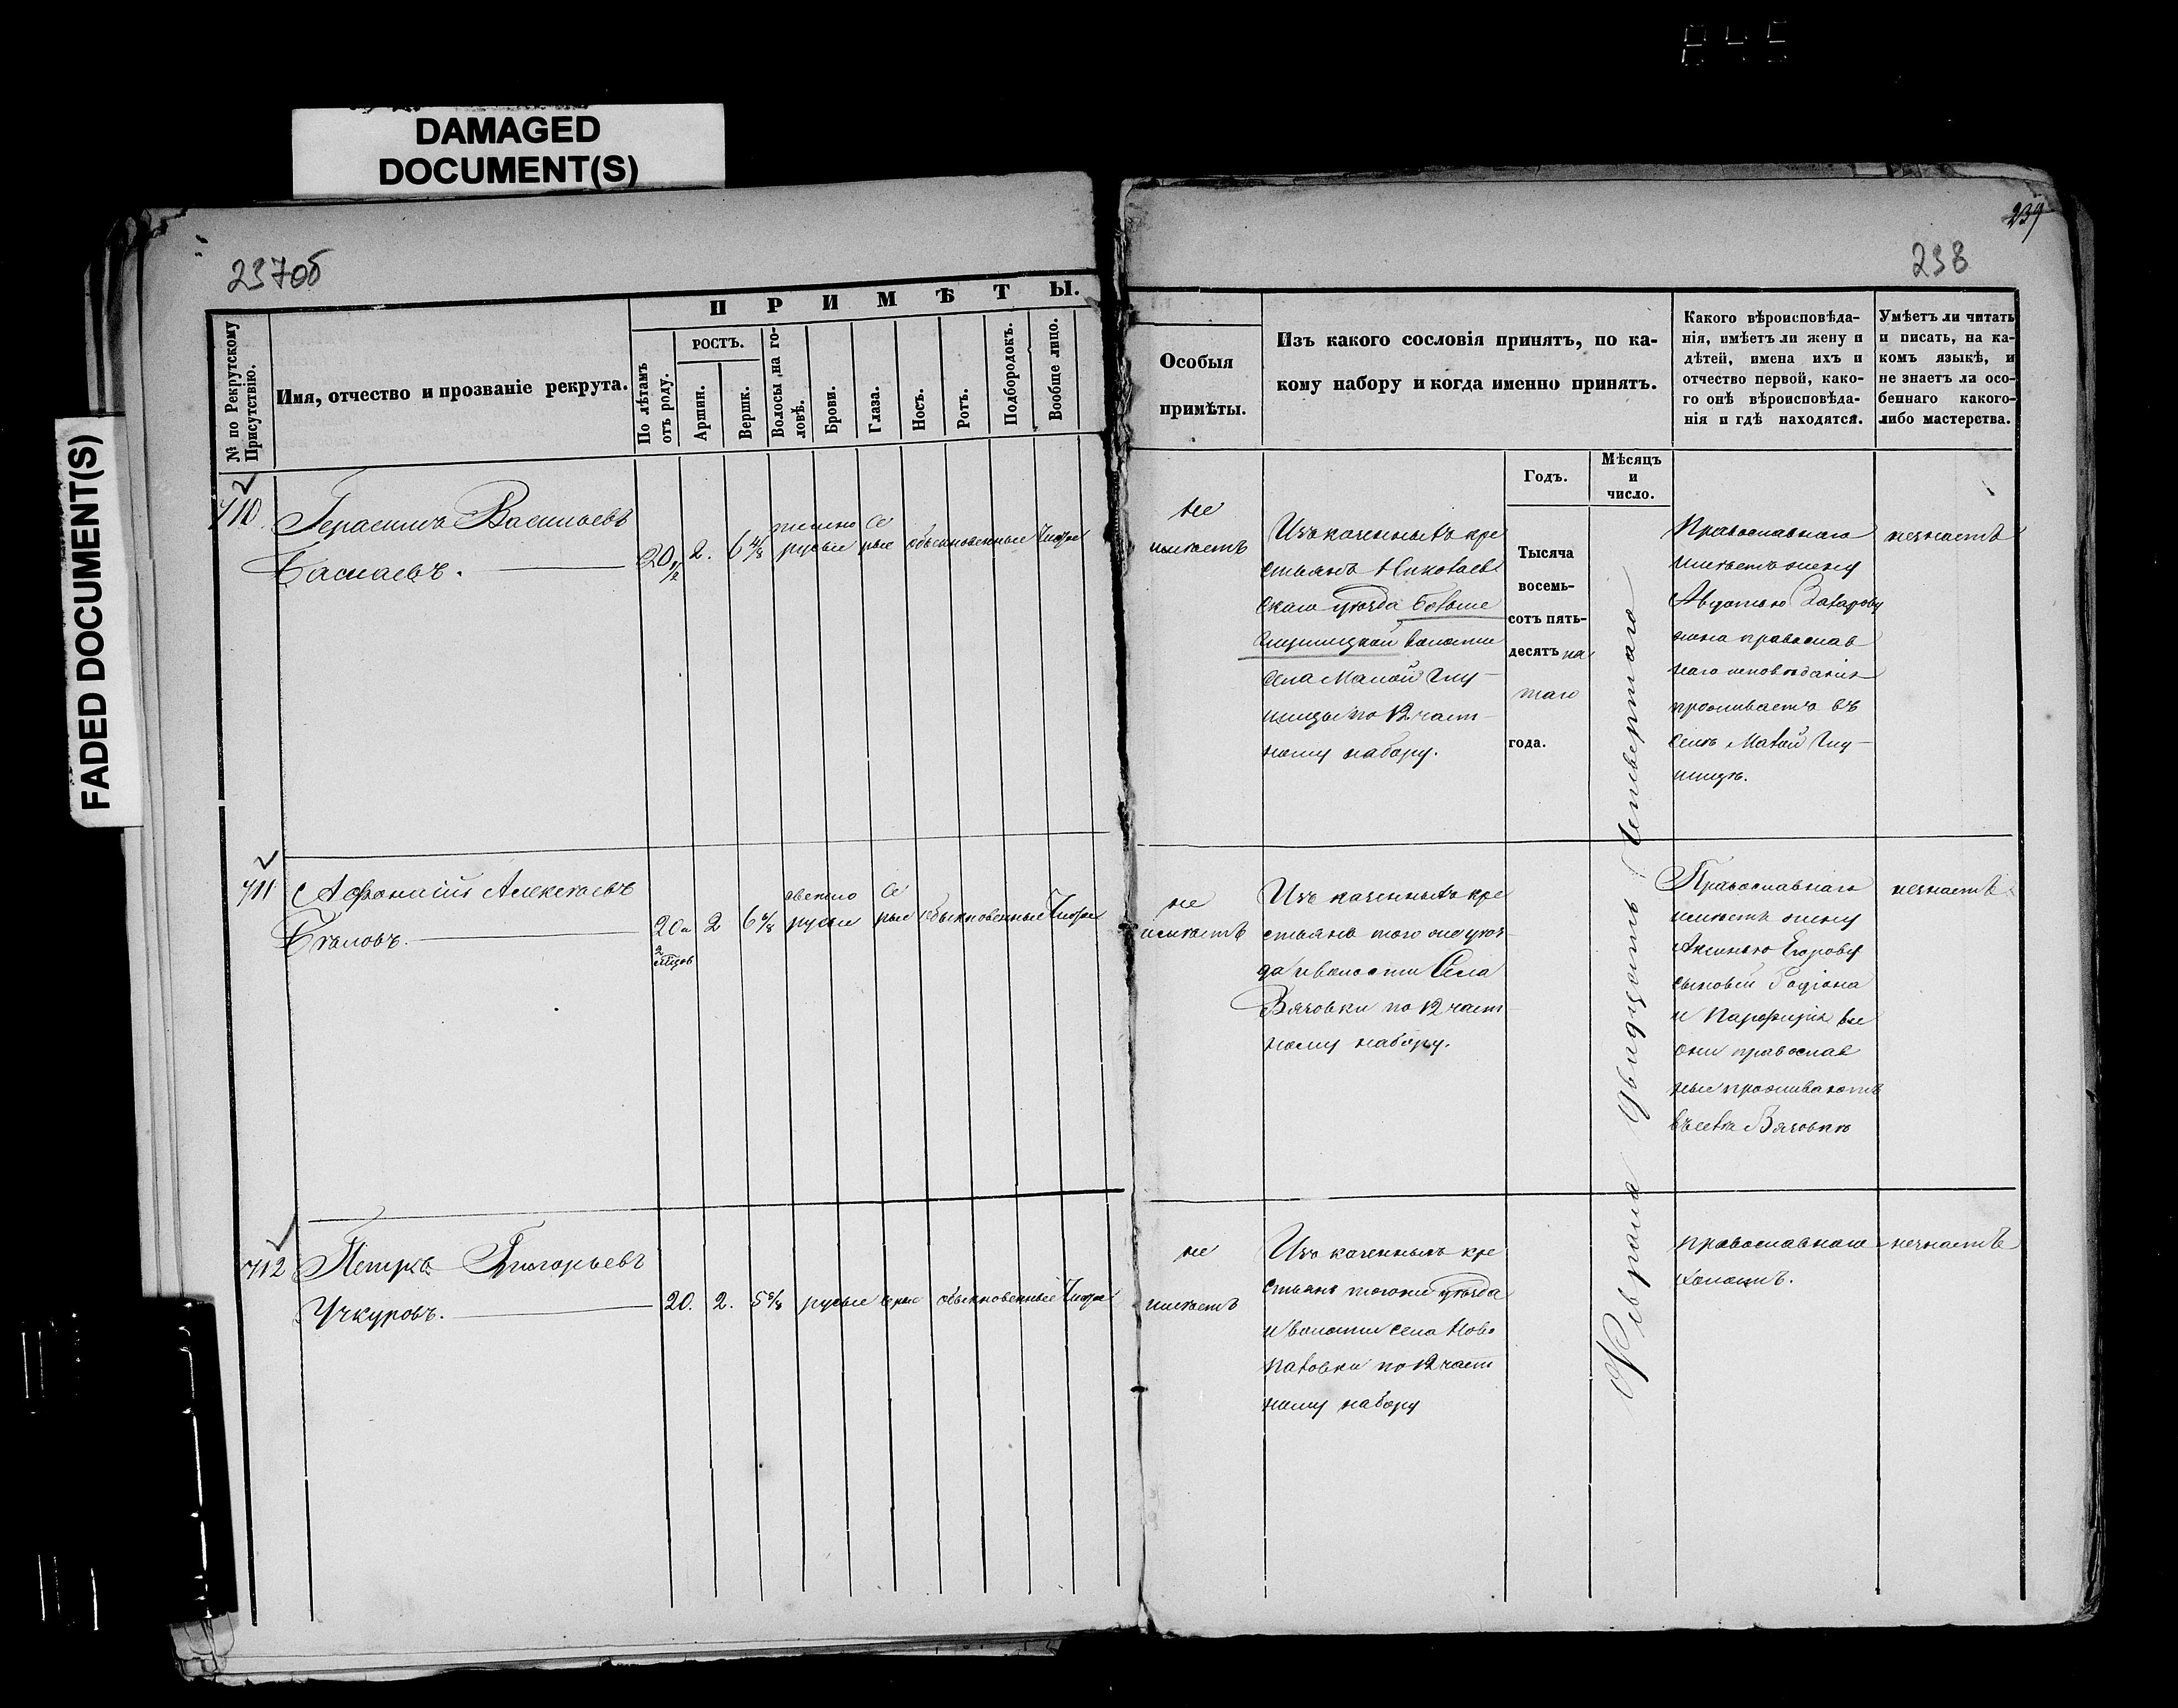 DAMAGED
DOCUMENT(S)
FADED DOCUMENT(S)
237об
239
238
ПРИМѢТЫ.
№ по Рекрутскому
Присутствію.
Имя, отчество и прозваніе рекрута.
По лѣтамъ
отъ роду.
РОСТЪ.
Аршин.
Вершк.
Волосы на го-
ловѣ.
Брови.
Глаза.
Носъ.
Ротъ.
Подбородокъ.
Вообще лицо.
Особыя
примѣты.
Изъ какого сословія принятъ, по ка-
кому набору и когда именно принятъ.
Годъ.
Мѣсяцъ
и
число.
Какого вѣроисповѣда-
нія, имѣетъ ли жену и
дѣтей, имена ихъ и
отчество первой, како-
го онѣ вѣроисповѣда-
нія и гдѣ находятся.
Умѣетъ ли читать
и писать, на ка-
комъ языкѣ, и
не знаетъ ли осо-
беннаго какого-
либо мастерства.
710
Герасимъ Васильевъ
20 1/2
2.
6 4/8
темно
русые
се
рые
обыкновенные
Чистое
не
имѣетъ
Изъ казенныхъ кре
стьянъ Николаев
скаго уѣзда Больше
Глушицкой волости
села Малой Глу-
шицы по 12 част-
ному набору.
Тысяча
восемь-
сотъ пять-
десятъ пя
таго
года.
Февраля двадцать четвертаго
Православнаго
имѣетъ жену
Авдотью Захарову
она православ
наго исповѣданія
проживаетъ въ
селѣ Малой Глу-
шицѣ.
незнаетъ
711
Афонасій Алексѣевъ
Бѣловъ.
20 и
2
мѣсцов
2
6 6/8
свѣтло
русые
се
рые
обыкновенные
Чистое
не
имѣетъ
Изъ казенныхъ кре
стьянъ того же уѣз-
да и волости Села
Вязовки по 12 част-
ному набору.
Православнаго
имѣетъ жену
Аксинью Егорову
сыновей Родіона
и Парфирія все
они православ
ные проживаютъ
въ селѣ Вязовкѣ
незнаетъ
712
Петръ Григорьевъ
Учкуровъ.
20.
2.
5 6/8
русые
серые
обыкновенные
Чистое
не
имѣетъ
Изъ казенныхъ кре
стьянъ тогоже уѣзда
и волости села Ново
павловки по 12 част
ному набору
православнаго
холостъ.
незнаетъ